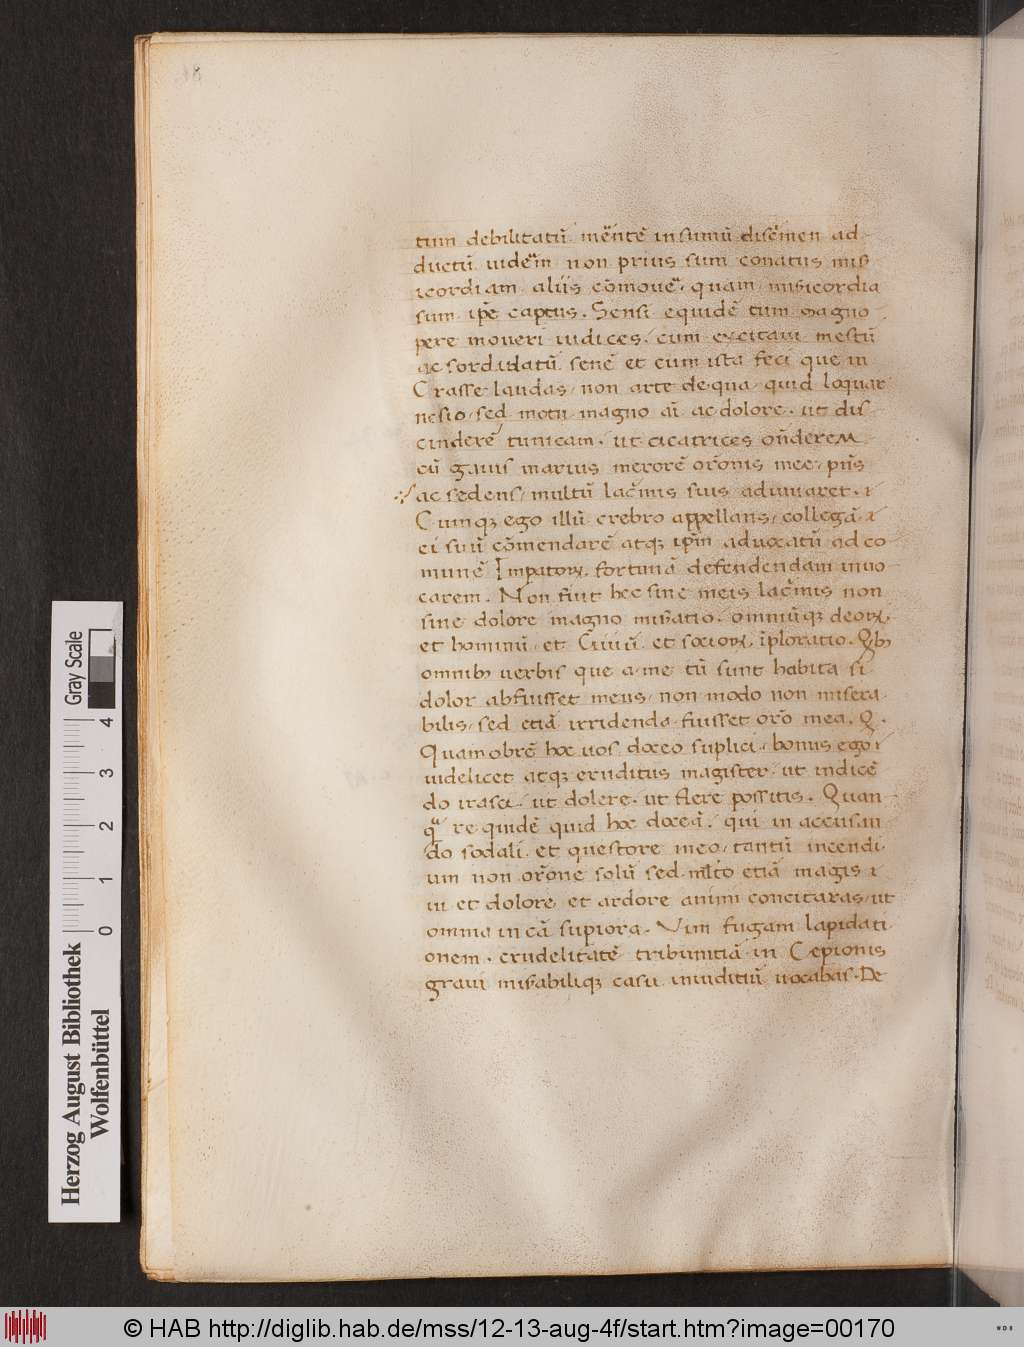 18
tum debilitatū. mērētē in sumū discͥmen ad
ductū uiderͣm non prius sum conatus mis̄
icordiam aliis cōmouer̄. quam misericordia
sum ip̄e captus. Sensi equidē tum magno
pere moueri iudices. cum excitaui mestū
ac sordidatū senē et cum ista feci que tu
Crasse laudas. non arte de qua quid loquar
nescio. sed motu magno aī ac dolore. ut dis
cinderē tunicam. ut cicatrices oñderem
cū gaius marius merorē or̄onis mee. pn̄s
ac sedens. multū lacͥmis suis adiuuaret.
Cumqꝫ ego illū crebro appellans. collegā
ei suū cōmendarē atqꝫ ip̄m aduocatū ad co
munē Impatorꝝ. fortunā defendendam inuo
carem. Non fuit hec sine meis lacͥmis non
sine dolore magno mis̄atio. omniūqꝫ deorꝝ
et hominū et Ciuiū et sociorꝝ. īploratio. Qͥbꝫ
omnibꝫ uerbis que a me tū sunt habita si
dolor abfuisset meus. non modo non misera
bilis. sed etiā irridenda fuisset or̄o mea. Q.
Quamobrē hoc uos doceo suplici. bonus ego
uidelicet atqꝫ eruditus magister. ut in dicē
do irasci. ut dolere. ut flere possitis. Quan
qͣ re quidē quid hoc doceā. qui in accusan
do sodali et questore meo. tantū incendi
um non or̄one solū sed ml̄to etiā magis
ui et dolore et ardore animi concitaras. ut
omnia in eā supiora. Vim fugam lapidati
onem. crudelitatē tribunitiā in Cepionis
graui mis̄abiliqꝫ casu in iuditiū uocabas. De
Gray Scale
0 1 2 3 4
Herzog August Bibliothek
Wolfenbüttel
© HAB http://diglib.hab.de/mss/12-13-aug-4f/start.htm?image=00170